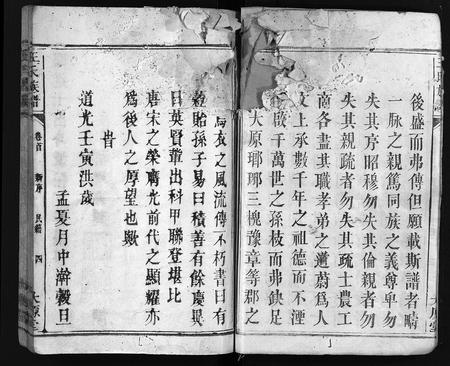 後盛而弗傳但願載斯譜者疇
一脉之親篤同族之義尊卑勿
失其序昭穆勿失其倫親者勿
失其親疏者勿失其疏士農工
商各盡其職孝弟之道蔚爲人
文上承數千年之祖德而不湮
啟千萬世之孫枝而弗缺足
大原瑯琊三槐豫章等郡之
衣之風流傳不朽書曰有
穀貽孫子易曰積善有餘慶異
日英賢輩出科甲聯登堪比
唐宋之榮膺光前代之顯耀亦
爲後人之厚望也歟
旹
道光壬寅洪歲
孟夏月中澣穀旦
王氏族譜
卷首
新序
民籍
四
太原堂